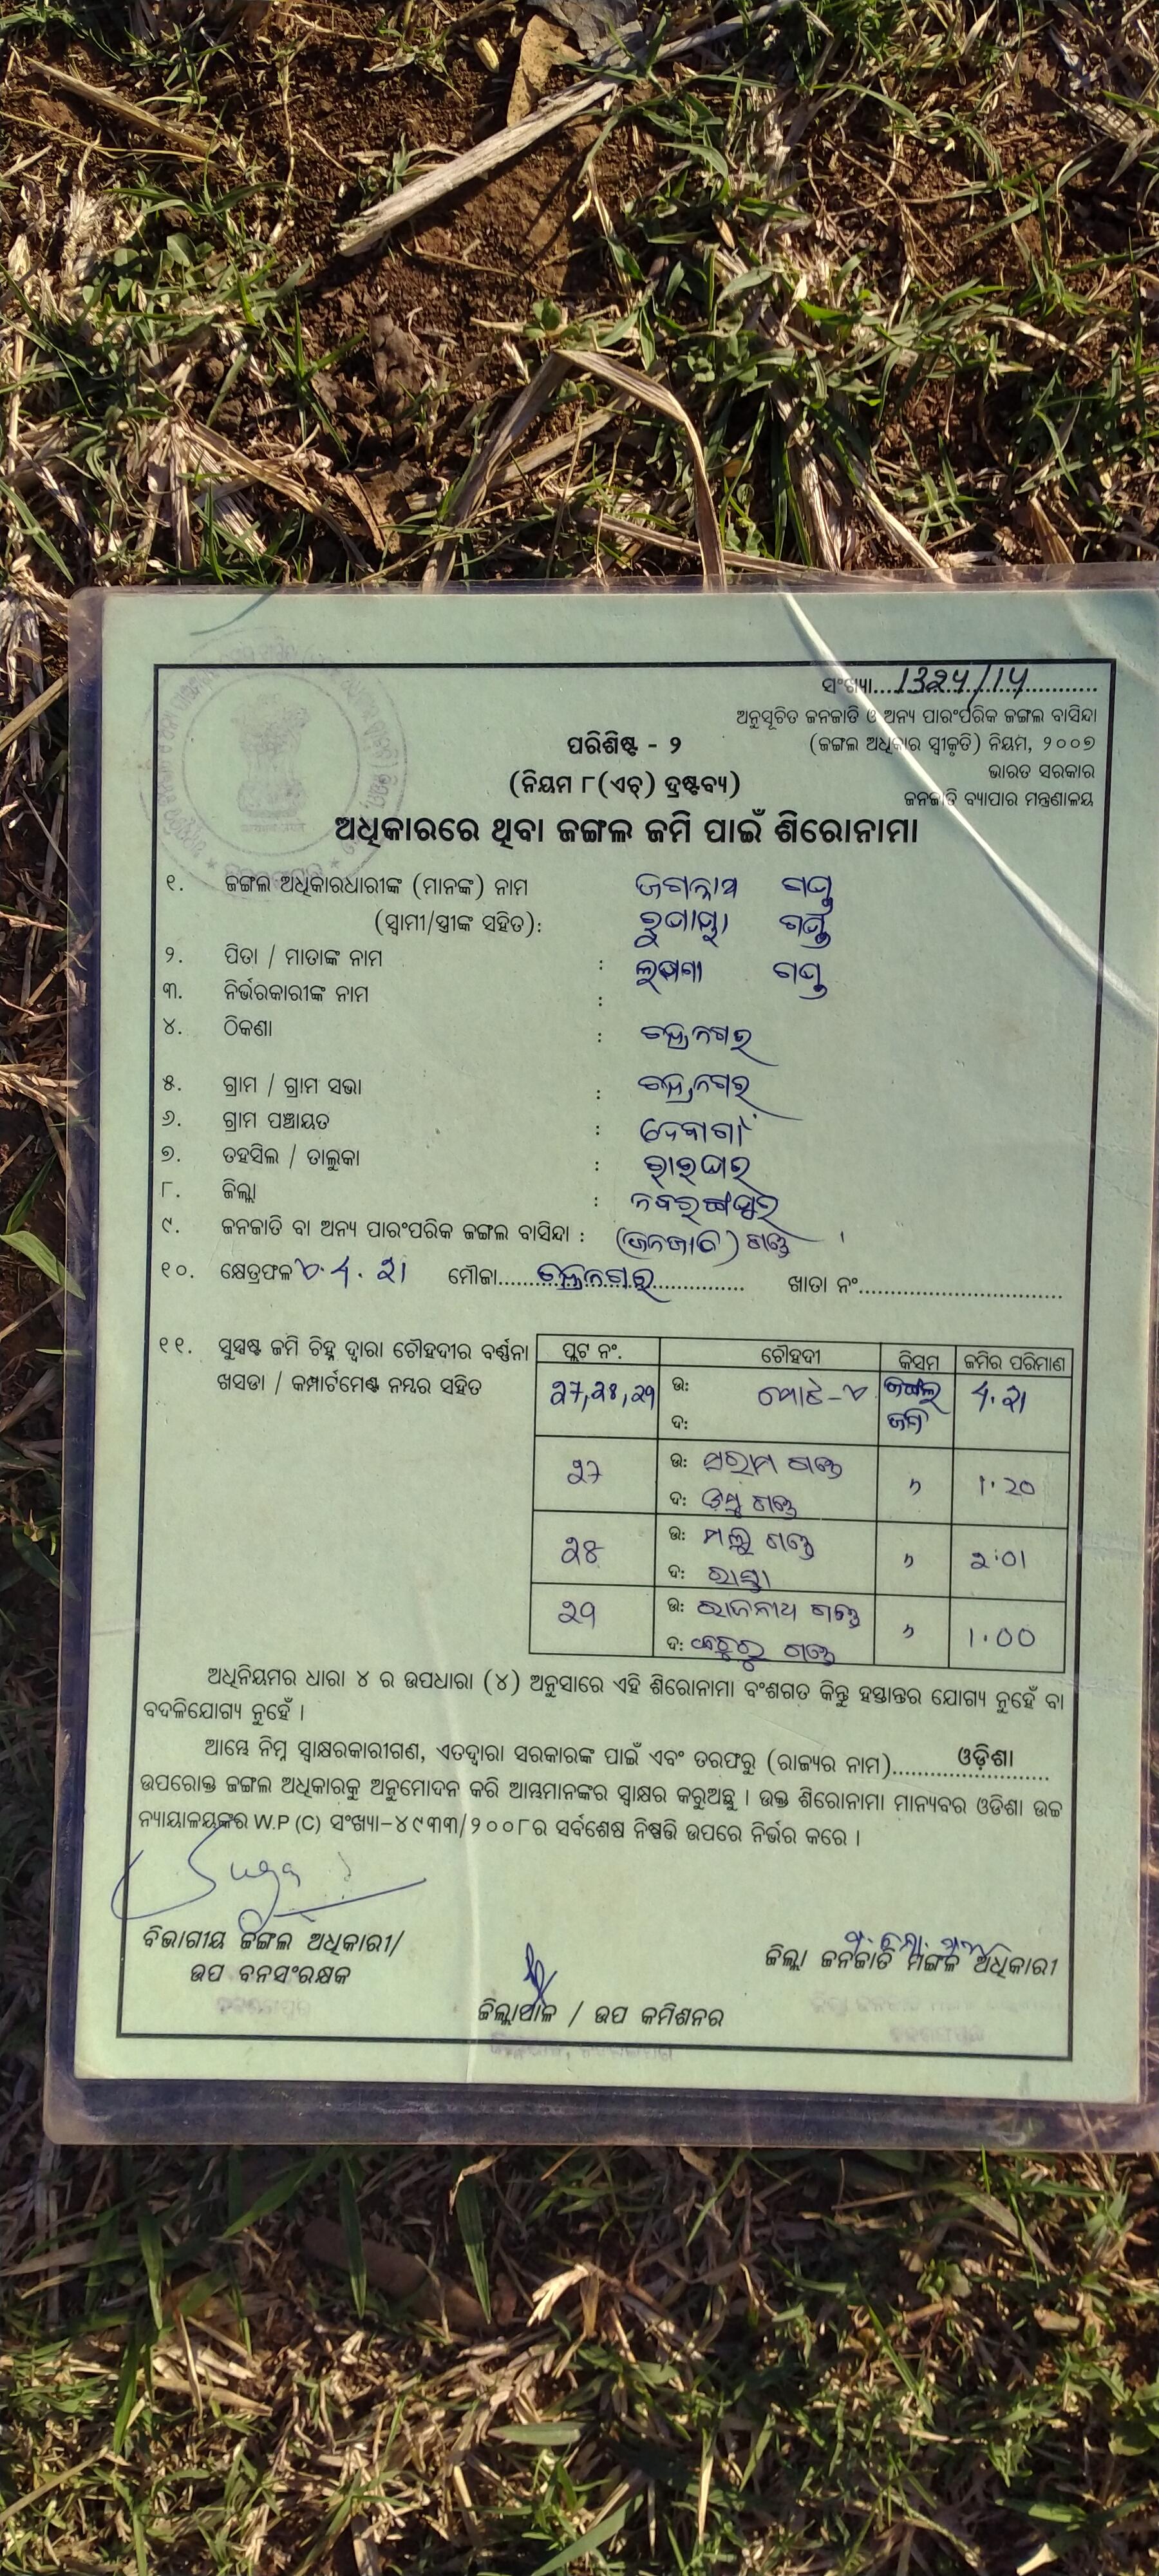 ସଂଖ୍ୟା..............................
ଅନୁସୂଚିତ ଜନଜାତି ଓ ଅନ୍ୟ ପାରଂପରିକ ଜଙ୍ଗଲ ବାସିନ୍ଦା
(ଜଙ୍ଗଲ ଅଧିକାର ସ୍ୱୀକୃତି) ନିୟମ, ୨୦୦୭
ଭାରତ ସରକାର
ଜନଜାତି ବ୍ୟାପାର ମନ୍ତ୍ରଣାଳୟ
ପରିଶିଷ୍ଟ - ୨
(ନିୟମ ୮(ଏଚ୍) ଦ୍ରଷ୍ଟବ୍ୟ)
ଅଧିକାରରେ ଥିବା ଜଙ୍ଗଲ ଜମି ପାଇଁ ଶିରୋନାମା
୧. ଜଙ୍ଗଲ ଅଧିକାରଧାରୀଙ୍କ (ମାନଙ୍କ) ନାମ ଜଗନ୍ନାଥ ଗଣ୍ଡ
(ସ୍ୱାମୀ/ସ୍ତ୍ରୀଙ୍କ ସହିତ): ଗଣ୍ଡ
୨. ପିତା / ମାତାଙ୍କ ନାମ : ଗଣ୍ଡ
୩. ନିର୍ଭରକାରୀଙ୍କ ନାମ :
୪. ଠିକଣା :
୫. ଗ୍ରାମ / ଗ୍ରାମ ସଭା :
୬. ଗ୍ରାମ ପଞ୍ଚାୟତ :
୭. ତହସିଲ / ତାଲୁକା : ରାଇଘର
୮. ଜିଲ୍ଲା : ନବରଙ୍ଗପୁର
୯. ଜନଜାତି ବା ଅନ୍ୟ ପାରଂପରିକ ଜଙ୍ଗଲ ବାସିନ୍ଦା : (ଜନଜାତି) ଗଣ୍ଡ
୧୦. କ୍ଷେତ୍ରଫଳ 4.21 ମୌଜା.............................. ଖାତା ନଂ..............................
୧୧. ସୁସ୍ପଷ୍ଟ ଜମି ଚିହ୍ନ ଦ୍ୱାରା ଚୌହଦୀର ବର୍ଣ୍ଣନା ପ୍ଲଟ ନଂ. ଚୌହଦୀ କିସମ ଜମିର ପରିମାଣ
ଖସଡା / କମ୍ପାର୍ଟମେଣ୍ଟ ନମ୍ବର ସହିତ 27,28,29 ଉ: ମୋଟ ଜଙ୍ଗଲ 4.21
ଦ: ଜମି
27 ଉ: ଗଣ୍ଡ " 1.20
ଦ: ଗଣ୍ଡ
28 ଉ: ମଲ୍ଲୁ ଗଣ୍ଡ " 2.01
ଦ: ରାସ୍ତା
29 ଉ: ରାଜନାଥ ଗଣ୍ଡ " 1.00
ଦ: ଗଣ୍ଡ
ଅଧିନିୟମର ଧାରା ୪ ର ଉପଧାରା (୪) ଅନୁସାରେ ଏହି ଶିରୋନାମା ବଂଶଗତ କିନ୍ତୁ ହସ୍ତାନ୍ତର ଯୋଗ୍ୟ ନୁହେଁ ବା
ବଦଳିଯୋଗ୍ୟ ନୁହେଁ ।
ଆମ୍ଭେ ନିମ୍ନ ସ୍ୱାକ୍ଷରକାରୀଗଣ, ଏତଦ୍ୱାରା ସରକାରଙ୍କ ପାଇଁ ଏବଂ ତରଫରୁ (ରାଜ୍ୟର ନାମ)..........ଓଡ଼ିଶା..........
ଉପରୋକ୍ତ ଜଙ୍ଗଲ ଅଧିକାରକୁ ଅନୁମୋଦନ କରି ଆମ୍ଭମାନଙ୍କର ସ୍ୱାକ୍ଷର କରୁଅଛୁ । ଉକ୍ତ ଶିରୋନାମା ମାନ୍ୟବର ଓଡିଶା ଉଚ୍ଚ
ନ୍ୟାୟାଳୟଙ୍କର W.P (C) ସଂଖ୍ୟା-୪୯୩୩/୨୦୦୮ର ସର୍ବଶେଷ ନିଷ୍ପତ୍ତି ଉପରେ ନିର୍ଭର କରେ ।
ବିଭାଗୀୟ ଜଙ୍ଗଲ ଅଧିକାରୀ/
ଉପ ବନସଂରକ୍ଷକ
ଜିଲ୍ଲା ଜନଜାତି ମଙ୍ଗଳ ଅଧିକାରୀ
ଜିଲ୍ଲାପାଳ / ଉପ କମିଶନର